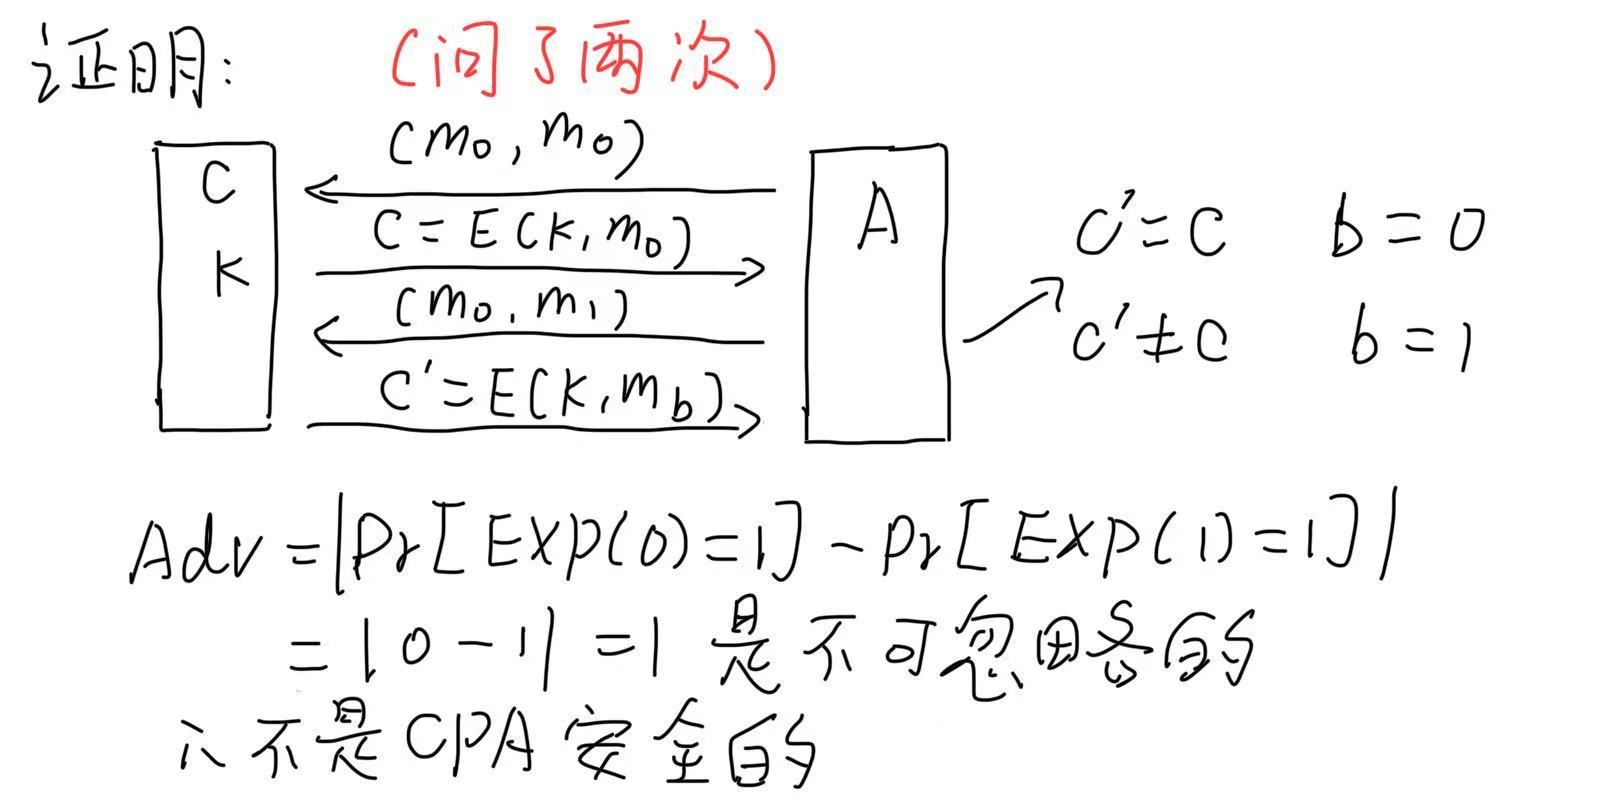 证明： (问了两次)
(m₀, m₀)
C
K
C = E(K, m₀)
(m₀, m₁)
C' = E(K, m_b)
A
c' = c b = 0
c' ≠ c b = 1
Adv = |Pr[EXP(0)=1] - Pr[EXP(1)=1]|
= |0 - 1| = 1 是不可忽略的
∴ 不是CPA安全的